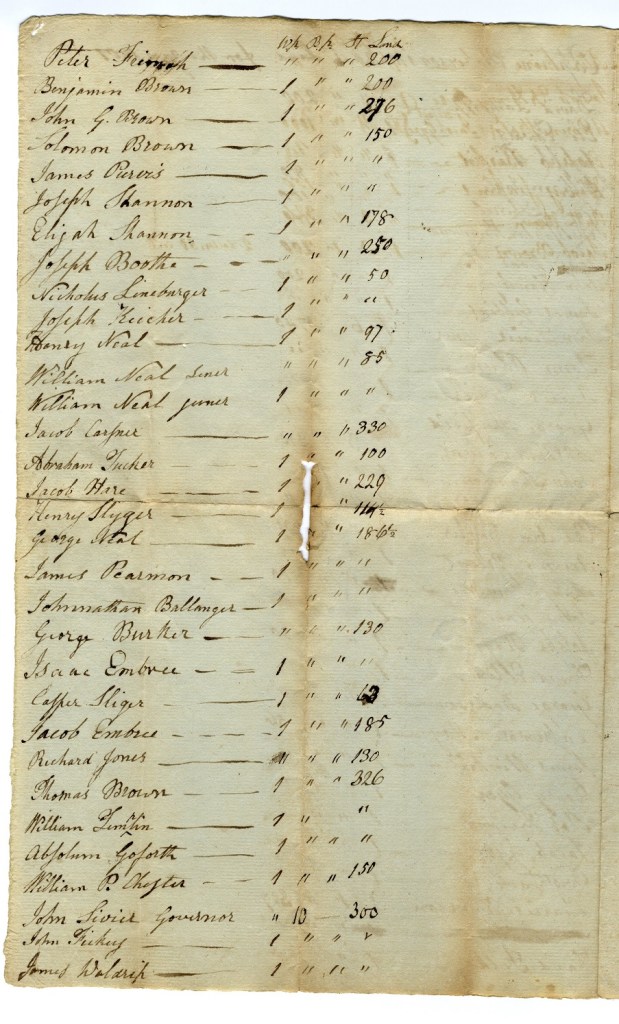 Wp Bp St Land
Peter — " " " 200
Benjamin Brown — 1 " " 200
John G. Brown — 1 " " 276
Solomon Brown — 1 " " 150
James — 1 " " "
Joseph Shannon — 1 " "
Elijah Shannon — 1 " " 178
Joseph Boothe - - " " " 250
Nicholus Lineburger - - 1 " " 50
Joseph - - 1 " " "
Henry Neal — 1 " " 97
William Neal Sener " " " 85
William Neal juner 1 " " "
Jacob — " " " 330
Abraham Tucker — 1 " 100
Jacob Hare — 1 " 229
Henry Slyger — 1 "
George Neal — 1 " " 186½
James Pearmon - - 1 " " "
Johnnathan Ballanger — 1 " "
George Burker — " " " 130
Isaac Embree - - = 1 " " "
Casper Sliger - - 1 " " 63
Jacob Embree - - - - 1 " " 185
Richard Jones - - " " " 130
Thomas Brown - - 1 " " 326
William — 1 " "
Absolum Goforth — 1 " " "
William P. Chester - - 1 " " 150
John Sivier Governor " 10 — 300
John — 1 " " "
James Waldrip — 1 " " "